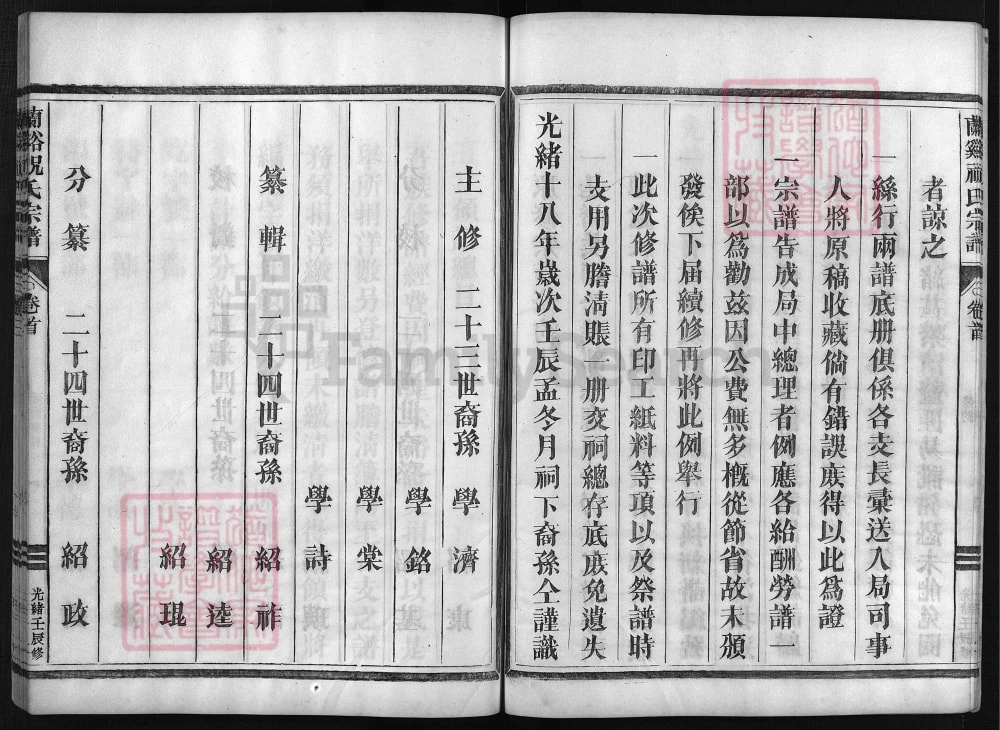 蘭谿祝氏宗譜
卷首
者諒之
一絲行兩譜底册俱係各支長彙送入局司事
人將原稿收藏倘有錯誤庶得以此爲證
一宗譜告成局中總理者例應各給酬勞譜一
部以爲勸茲因公費無多概從節省故未頒
發俟下屆續修再將此例舉行
一此次修譜所有印工紙料等項以及祭譜時
支用另謄淸賬一册交祠總存底庶免遺失
光緒十八年歲次壬辰孟冬月祠下裔孫仝謹識
主修 二十三世裔孫 學濟
學銘
學棠
學詩
纂輯 二十四世裔孫 紹祚
紹逵
紹琨
分纂 二十四世裔孫 紹政
蘭谿祝氏宗譜
卷首
光緒壬辰修
FamilySearch